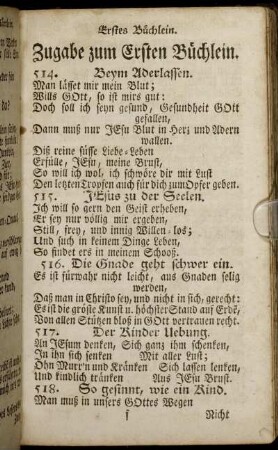 Erstes Büchlein.
Zugabe zum Ersten Büchlein.
514. Beym Aderlassen.
Man lässet mir mein Blut;
Wills GOtt, so ist mirs gut:
Doch soll ich seyn gesund, Gesundheit GOtt
gefallen,
Dann muß nur JEsu Blut in Herz und Adern
wallen.
Diß reine süsse Liebe-Leben
Erfülle, JEsu, meine Brust,
So will ich wol, ich schwöre dir mit Lust
Den letzten Tropfen auch für dich zum Opfer geben.
515. JEsus zu der Seelen.
Ich will so gern den Geist erheben,
Er sey nur völlig mir ergeben,
Still, frey, und innig Willen-los;
Und such in keinem Dinge Leben,
So findet ers in meinem Schooß.
516. Die Gnade geht schwer ein.
Es ist fürwahr nicht leicht, aus Gnaden selig
werden,
Daß man in Christo sey, und nicht in sich, gerecht:
Es ist die gröste Kunst u. höchster Stand auf Erde,
Von allen Stützen bloß in GOtt vertrauen recht.
517. Der Kinder Uebung.
An JEsum denken, Sich ganz ihm schenken,
In ihn sich senken Mit aller Lust;
Ohn Murr'n und Kränken Sich lassen lenken,
Und kindlich tränken Aus JEsu Brust.
518. So gesinnt, wie ein Kind.
Man muß in unsers GOttes Wegen
f Nicht